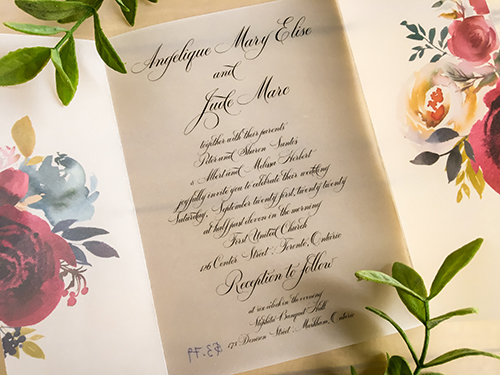 Angelique Mary Elise
and
Jude Marc
together with their parents
Peter and Sharon Santos
& Albert and Melissa Herbert
joyfully invite you to celebrate their wedding
Saturday, September twenty first, twenty twenty
at half past eleven in the morning
First United Church
Center Street : Toronto, Ontario
Reception to follow
at six oclock in the evening
Banquet Hall
Denison Street : Markham, Ontario